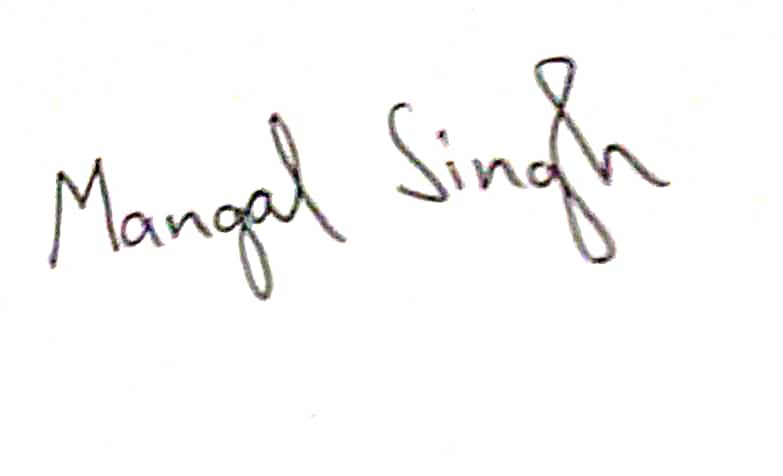 Mangal Singh